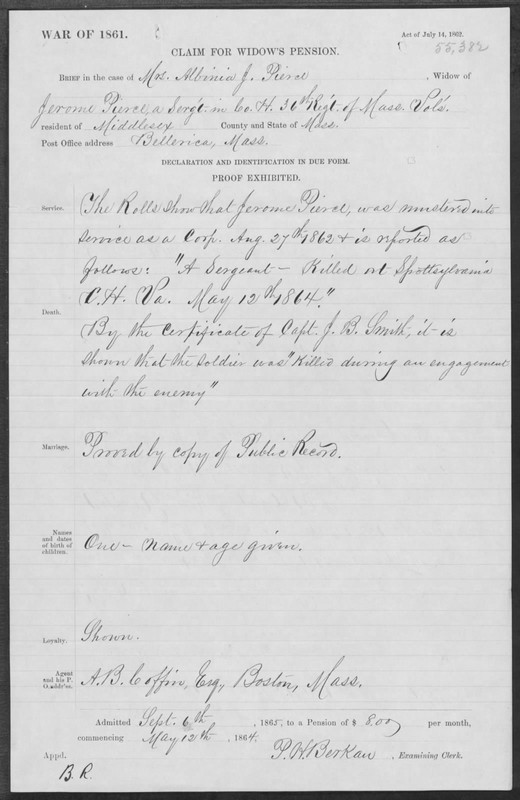 WAR OF 1861.
Act of July 14, 1862.
55,382
CLAIM FOR WIDOW'S PENSION.
BRIEF in the case of Mrs. Albinia J. Pierce, Widow of
Jerome Pierce, a Serg't. in Co. H. 36th Reg't. of Mass. Vols.
resident of Middlesex County and State of Mass.
Post Office address Bellerica, Mass.
DECLARATION AND IDENTIFICATION IN DUE FORM.
PROOF EXHIBITED.
Service. The Rolls show that Jerome Pierce, was mustered into
service as a Corp. Aug. 27th 1862 & is reported as
follows: "A Sergeant – Killed at Spottsylvania
Death. C. H. Va. May 12th 1864".
By the Certificate of Capt. J. B. Smith, it is
shown that the soldier was "Killed during an engagement
with the enemy"
Marriage. Proved by copy of Public Record.
Names and dates of birth of children. One – name & age given.
Loyalty. Shown.
Agent and his P. O. addr'ss. A. B. Coffin, Esq., Boston, Mass.
Admitted Sept. 6th, 1865, to a Pension of $ 8.00 per month,
commencing May 12th, 1864.
P. H. Berkau, Examining Clerk.
Appl.
B. R.